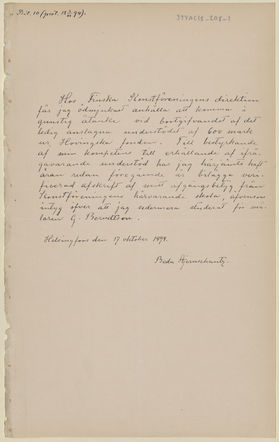 Hos Finska Konstföreningens direktion
får jag ödmjukast anhålla att komma i
gunstig åtanke vid bortgifvandet af det
ledig anslagna understödet af 600 mark
ur Hovingska fonden. Till bestyrkande
af min kompetens till erhållande af ifrå-
gavarande understöd har jag härjämte haft
äran redan föregående år bilägga veri-
ficerad afskrift af mitt afgångsbetyg från
Konstföreningens härvarande skola, äfvensom
intyg öfver att jag sedermera studerat för må-
laren G. Berndtson.
Helsingfors den 17 oktober 1894.
Beda Stjernschantz.